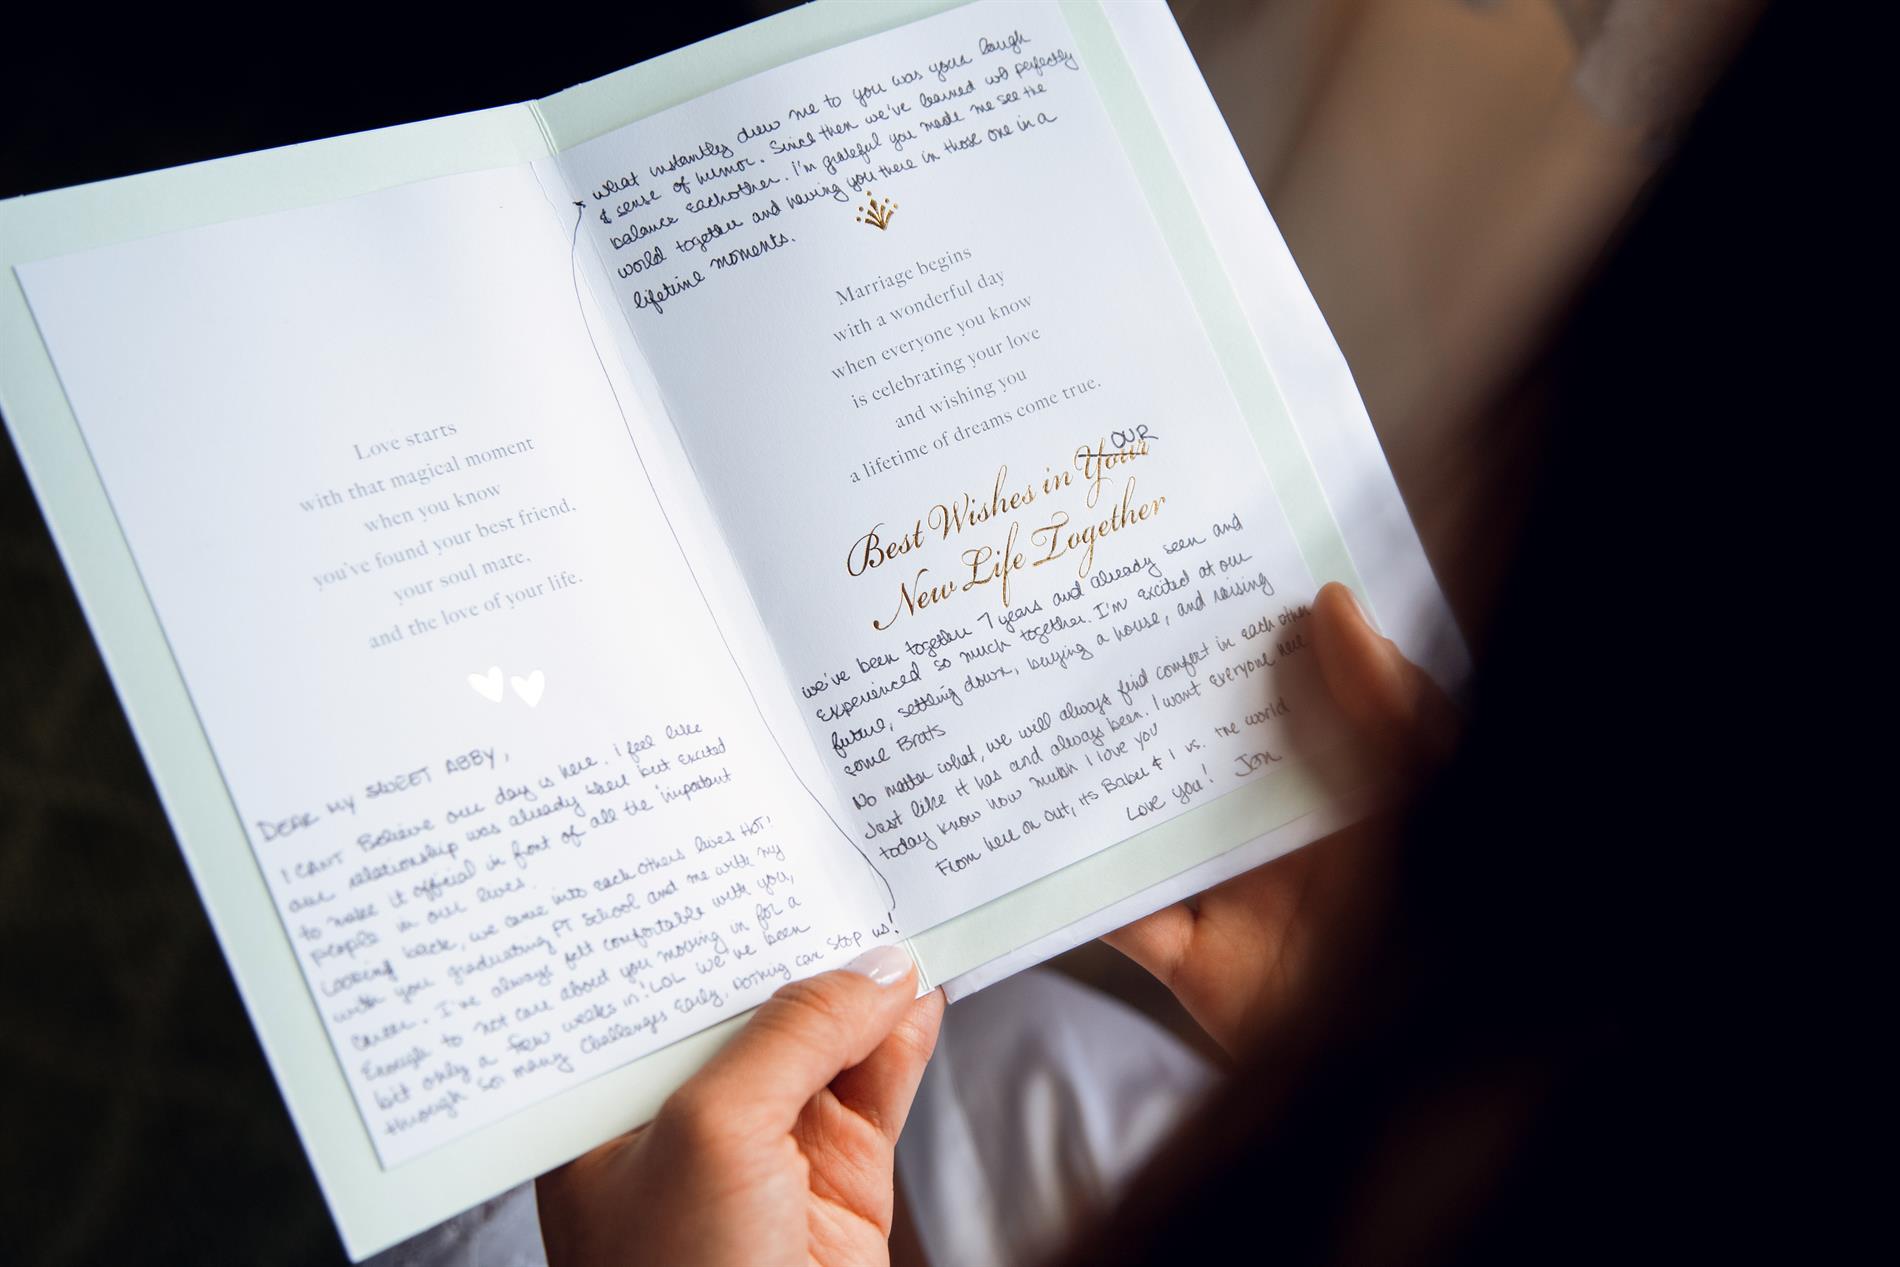 Love starts
with that magical moment
when you know
you've found your best friend,
your soul mate,
and the love of your life.
DEAR MY SWEET ABBY,
I CAN'T Believe our day is here. I feel like
our relationship was already there but excited
to make it official in front of all the important
people in our lives.
Looking back, we came into each others lives HOT!
with you graduating PT School and me with my
career. I've always felt comfortable with you,
Enough to not care about you moving in for a
bit only a few weeks in! LOL we've been
through so many challenges early, nothing can stop us!
what instantly drew me to you was your laugh
& sense of humor. Since then we've learned we perfectly
balance eachother. I'm grateful you made me see the
world together and having you there in those one in a
lifetime moments.
Marriage begins
with a wonderful day
when everyone you know
is celebrating your love
and wishing you
a lifetime of dreams come true.
OUR
Best Wishes in Your
New Life Together
we've been together 7 years and already seen and
experienced so much together. I'm excited at our
future, settling down, buying a house, and raising
some Brats
No matter what, we will always find comfort in each other
Just like it has and always been. I want everyone here
today know how much I love you
From here on out, its Babe & I vs. the world
Love you! Jon